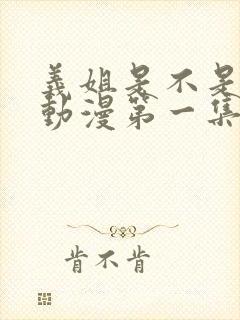 義姐是不是
動漫第一集
肯不肯